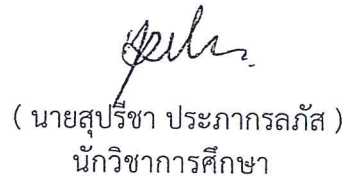 ( นายสุปรีชา ประภากรลภัส )
นักวิชาการศึกษา